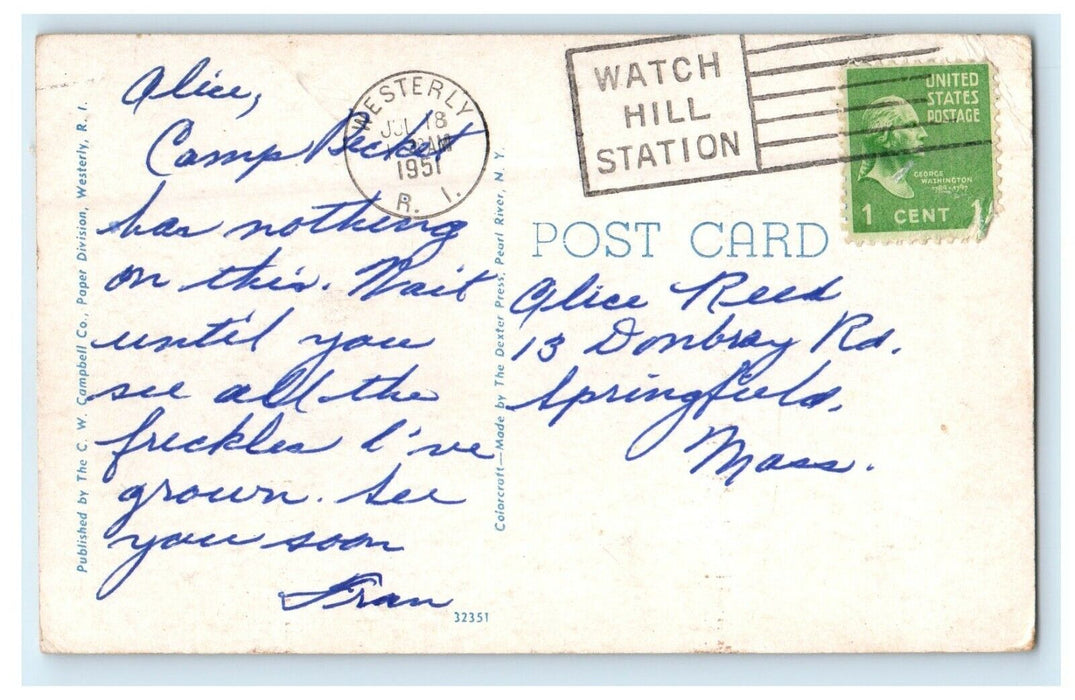 Alice,
Camp Becket
has nothing
on this. Wait
until you
see all the
freckles I've
grown. See
you soon
Fran
WESTERLY
JUL 18
AM
1951
R. I.
WATCH
HILL
STATION
UNITED
STATES
POSTAGE
GEORGE
WASHINGTON
1789-1797
1 CENT 1
POST CARD
Alice Reed
13 Donbray Rd.
Springfield,
Mass.
Published by The C. W. Campbell Co., Paper Division, Westerly, R. I.
Colorcraft—Made by The Dexter Press, Pearl River, N. Y.
32351